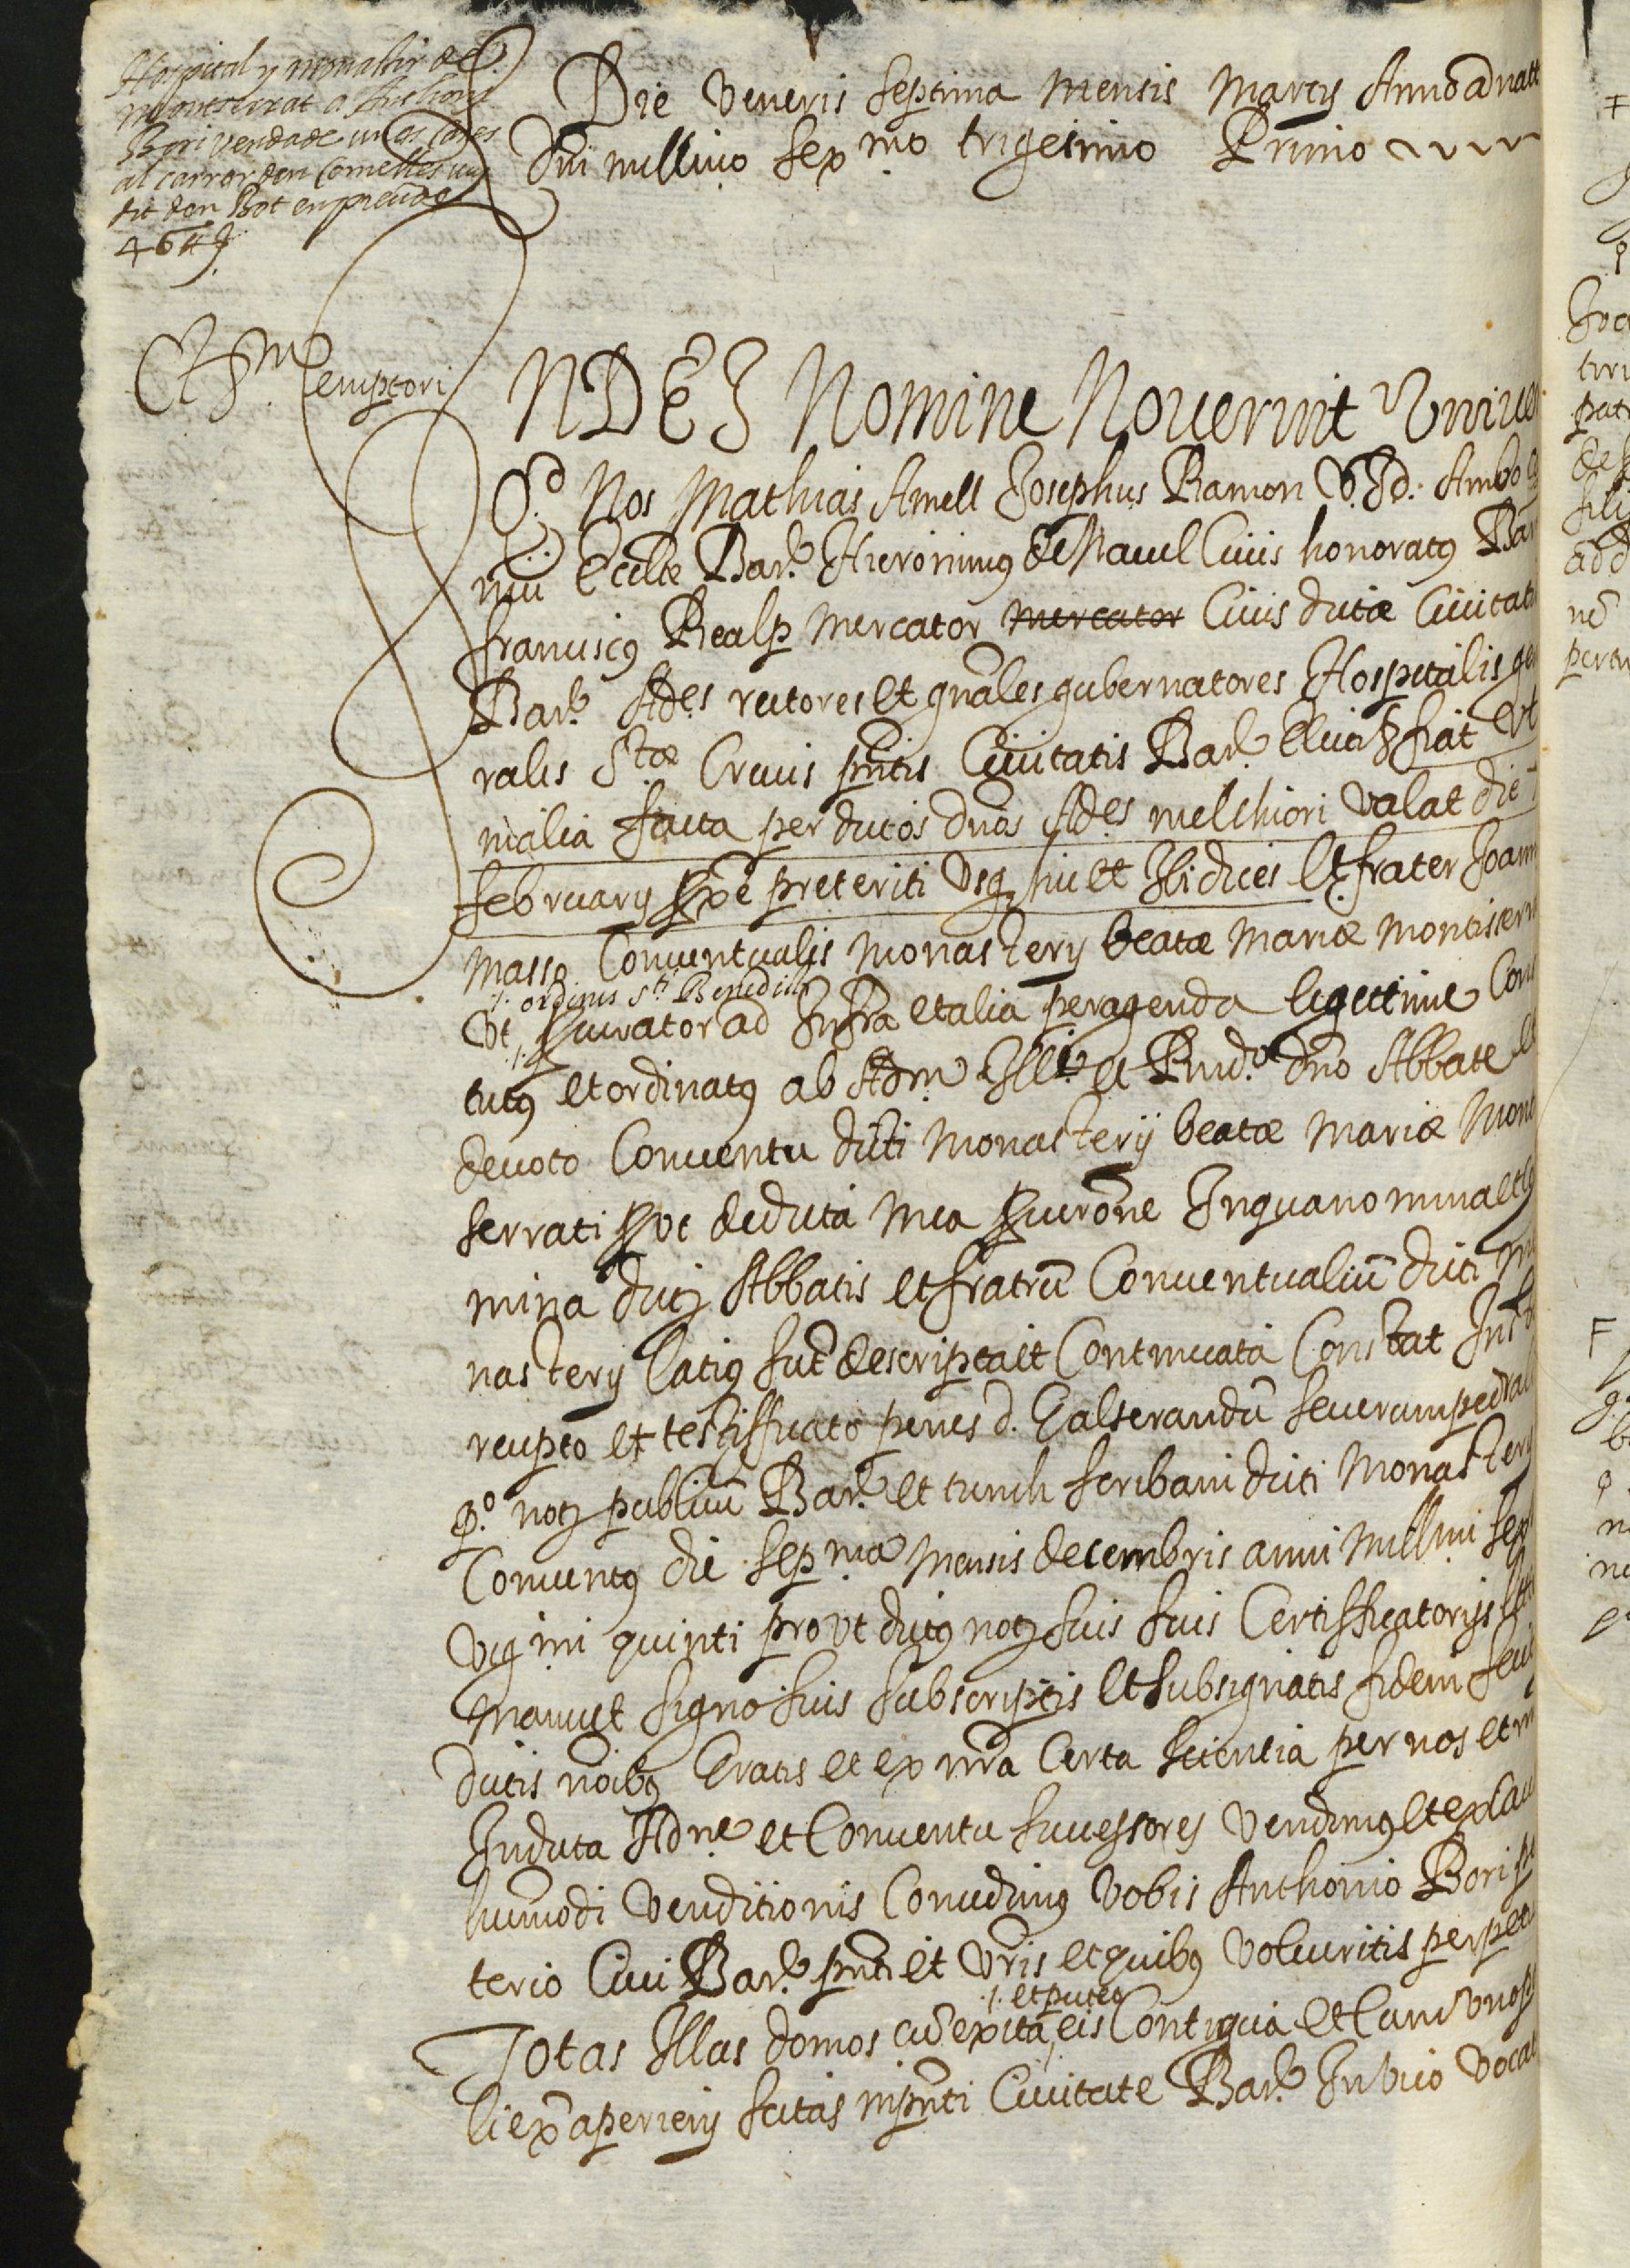 Hospital y monastir de
montserrat a Anthoni
Bori venda de unes cases
al carrer den Comelles vuy
dit den Bot en preu de
464 ll
Die Veneris septima mensis Martij Anno a natt
Dñi millimo sex.mo trigesimo Primo
Ct.m emptori
IN DEI Nomine Noverint Univer
Q.d Nos Mathias Amell Josephus Ramon V.Jd. Ambo
nici Ecclæ Bar.e Hieronimus de Navel Civis honoratus Bar
franciscus Realp Mercator mercator Civis dictæ Civitatis
Bar.e Ad.es rectores et gñales gubernatores Hospitalis gen
ralis S.tæ Crucis pñtis Civitatis Bar.e fiat Ut
malia facta per dictos dños Ad.es melchiori Valat die
februarij pxe preteriti Usq hic et Ibi dices Et frater Joann
Masso Conventualis Monasterij beatæ Mariæ Montiserr
./. ordinis S.ti Benedicti
Ut procurator ad Infra et alia peragenda legittime Cons
tutus et ordinatus ab Adm. Ill.e et Rnd.o dño Abbate et
devoto Conventu dicti Monasterij beatæ Mariæ Mont
serrati prout de dicta mea procurõne In qua nomina et
mina dicti Abbatis et fratrũ Conventualiũ dicti Mo
nasterij latius sunt descripta et Continuata Constat Inst
recepto et testifficato penes d. Galserandũ Severumpedra
q.o notm publicũ Bar.e et tunch scribam dicti Monasterij
Conventus die sep.ma mensis decembris anni Millmi sex
vig.mi quinti prout dictus nots suis Certifficatorijs litt
Manu et signo suis subscriptis et subsignatis fidem fecit
dictis noibus Gratis et ex nrã Certa scientia per nos et n
In dicta Adne et Conventu successores Vendimus et ex cau
huiusmodi Venditionis Concedimus Vobis Anthonio Bori
terio Civi Bar.e pñti et Vrĩs et quibus Volueritis perpetu
./. et puteo
Totas Illas domos cũ exita, eis Contigua Et Cum uno
li ex aperieij scitas in pñti Civitate Bar.e In Vico Vocat